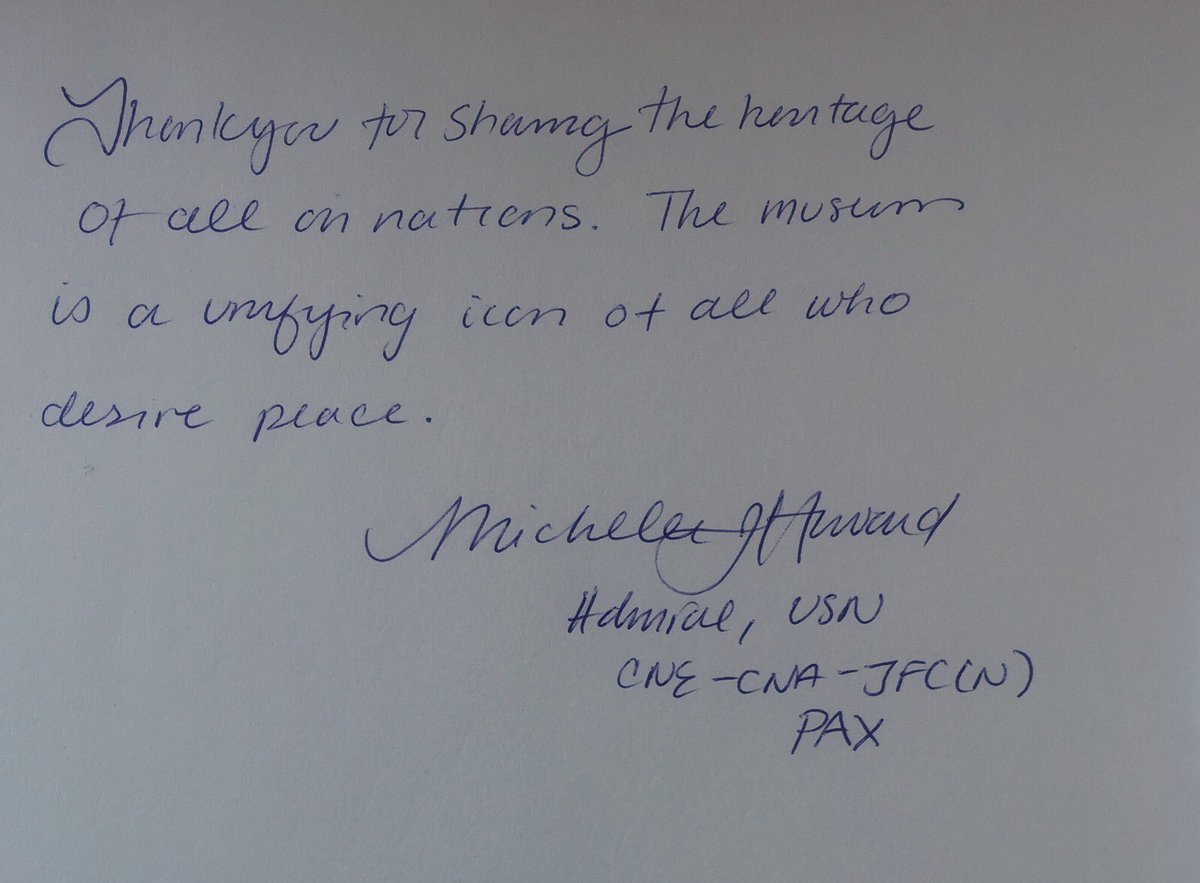 Thank you for sharing the heritage
of all our nations. The museum
is a unifying icon of all who
desire peace.
Michelle J Howard
Admiral, USN
CNE-CNA-JFC(N)
PAX